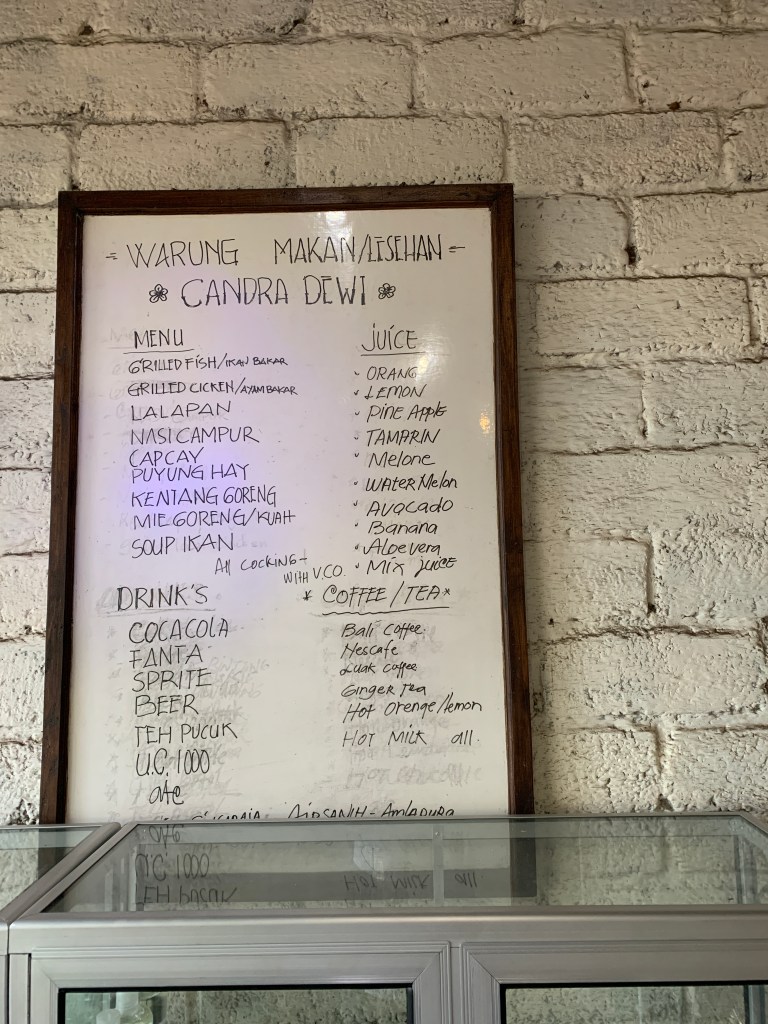 WARUNG MAKAN/LESEHAN
CANDRA DEWI
MENU
GRILLED FISH/IKAN BAKAR
GRILLED CICKEN/AYAM BAKAR
LALAPAN
NASI CAMPUR
CAPCAY
PUYUNG HAY
KENTANG GORENG
MIE GORENG/KUAH
SOUP IKAN
All COCKING
WITH V.CO.
JUICE
ORANG
LEMON
Pine Apple
TAMARIN
Melone
WATER Melon
Avocado
Banana
Aloevera
Mix JUICE
DRINK'S
COCACOLA
FANTA
SPRITE
BEER
TEH PUCUK
U.C. 1000
* COFFEE / TEA *
Bali Coffee
Nescafe
Luak coffee
Ginger Tea
Hot Orenge/lemon
Hot Milk all.
AIRSANIH - Amlapura